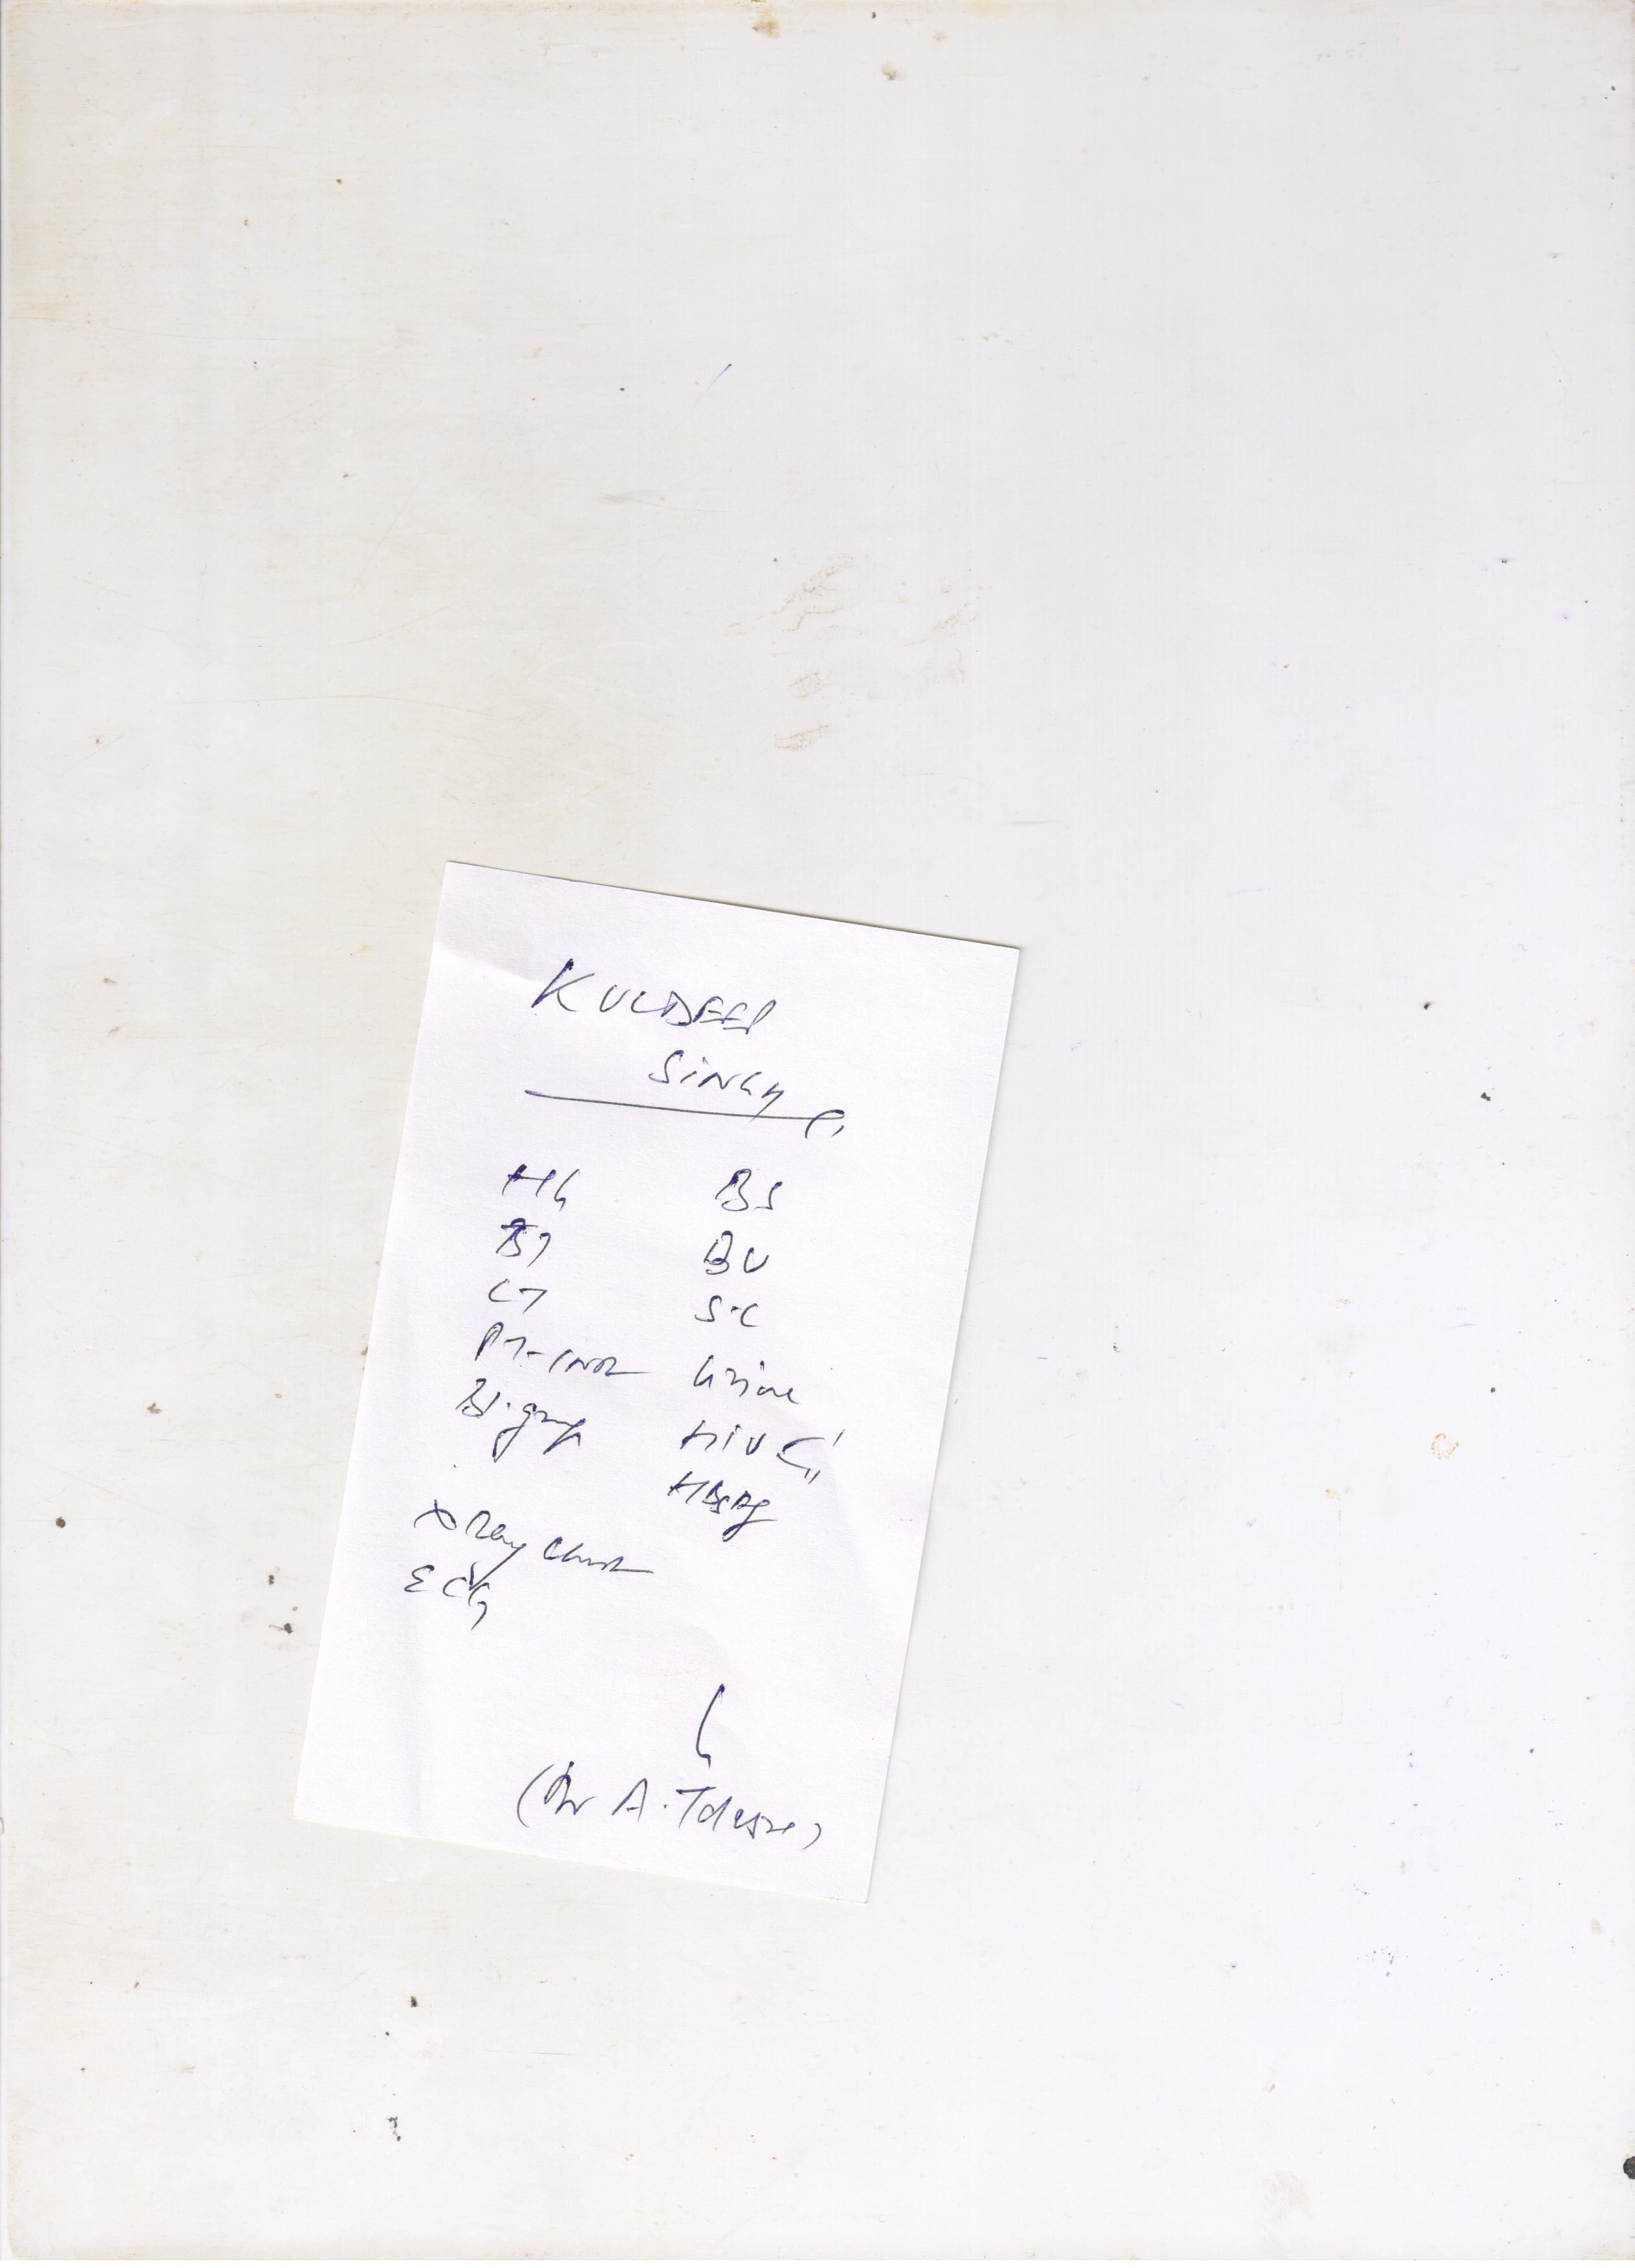 KULDEEP
SINGH
Hb BS
BT BU
CT S.C
PT-INR Urine
Bl. group HIV
HBsAg
X Ray Chest
ECG
(Dr A.